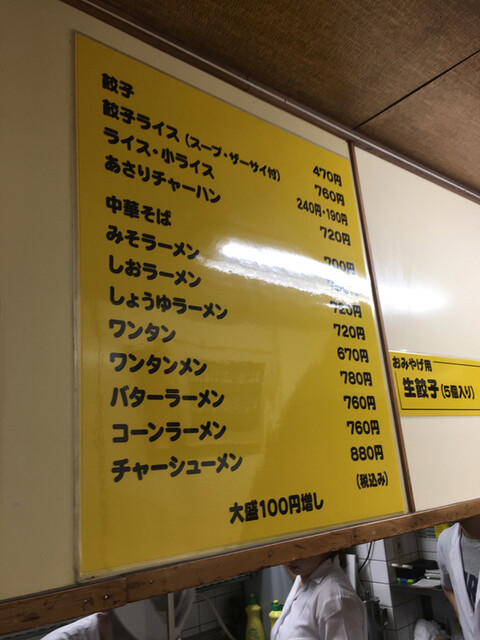 餃子 470円
餃子ライス(スープ・ザーサイ付) 760円
ライス・小ライス 240円・190円
あさりチャーハン 720円
中華そば 700円
みそラーメン
しおラーメン 720円
しょうゆラーメン 720円
ワンタン 670円
ワンタンメン 780円
バターラーメン 760円
コーンラーメン 760円
チャーシューメン 880円
(税込み)
大盛100円増し
おみやげ用
生餃子(5個入り)